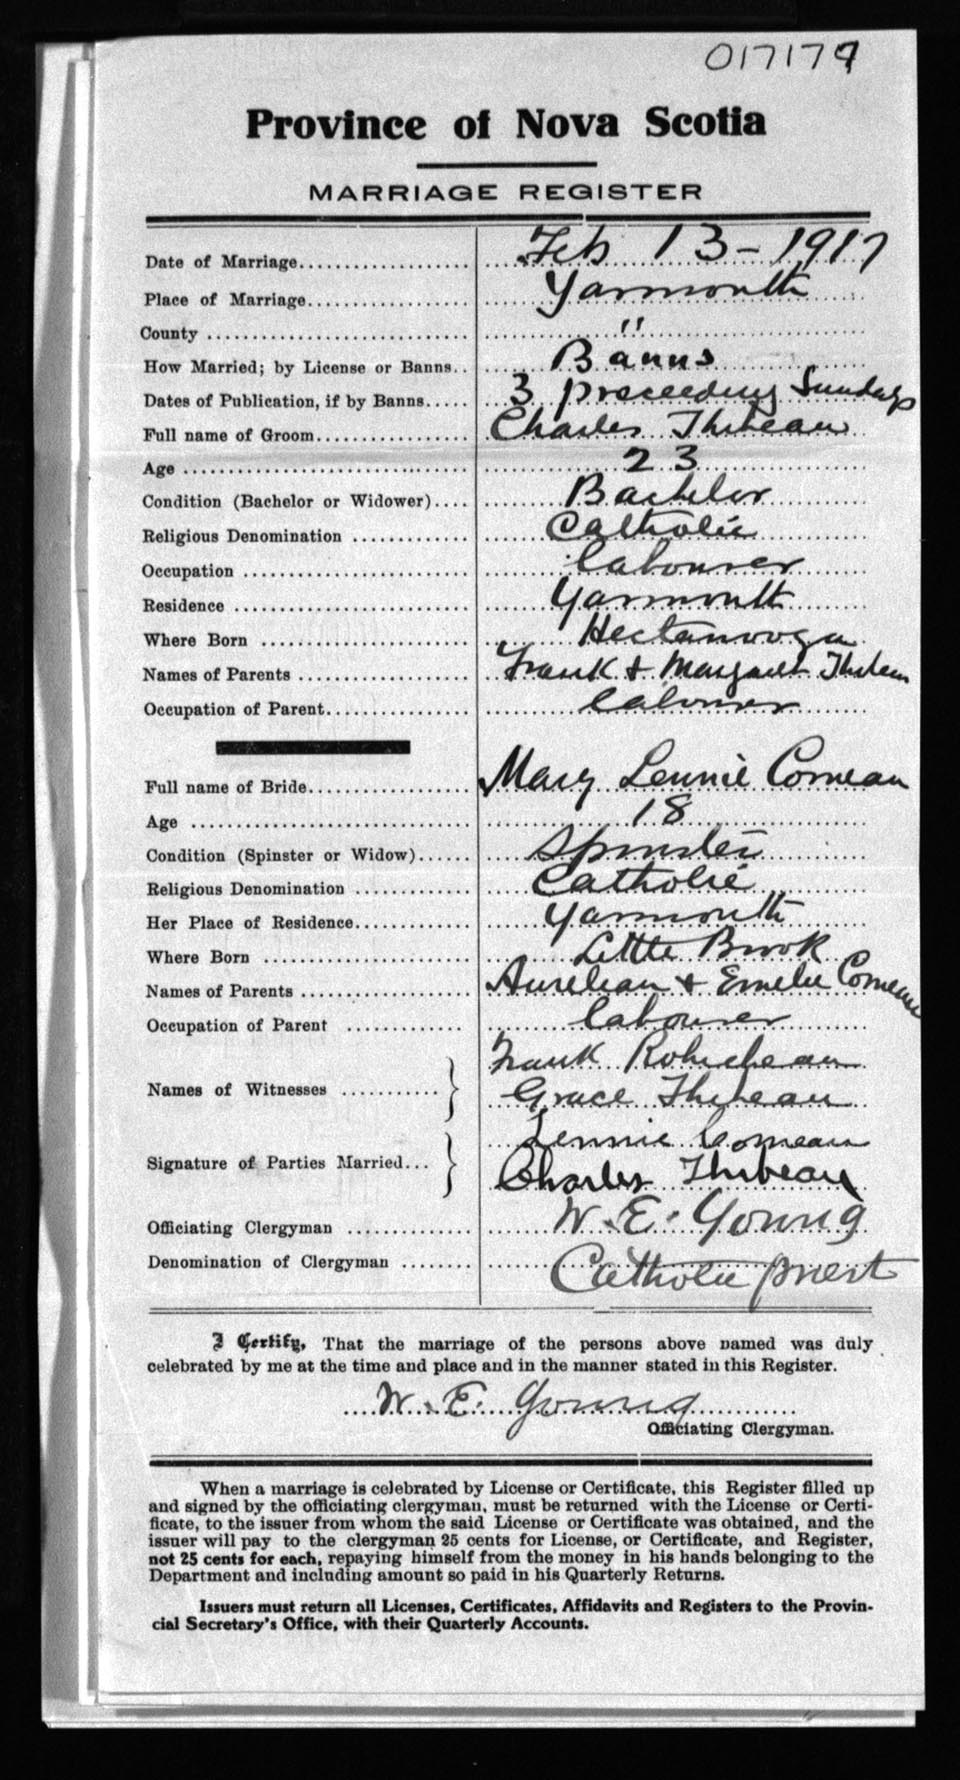 017179
Province of Nova Scotia
MARRIAGE REGISTER
Date of Marriage.................... Feb 13 - 1917
Place of Marriage................... Yarmouth
County ............................. "
How Married; by License or Banns.. Banns
Dates of Publication, if by Banns..... 3 preceeding Sundays
Full name of Groom.................. Charles Thibeau
Age ................................ 23
Condition (Bachelor or Widower).... Bachelor
Religious Denomination ............. Catholic
Occupation ......................... labourer
Residence .......................... Yarmouth
Where Born ......................... Hectanooga
Names of Parents ................... Frank & Margaret Thibeau
Occupation of Parent................ labourer
Full name of Bride.................. Mary Lennie Comeau
Age ................................ 18
Condition (Spinster or Widow)...... Spinster
Religious Denomination ............. Catholic
Her Place of Residence............. Yarmouth
Where Born ......................... Little Brook
Names of Parents ................... Aurelian & Emelie Comeau
Occupation of Parent ............... labourer
Names of Witnesses ........... } Frank Robicheau
Grace Thibeau
Signature of Parties Married... } Lennie Comeau
Charles Thibeau
Officiating Clergyman ............. W. E. Young
Denomination of Clergyman ........ Catholic priest
I Certify, That the marriage of the persons above named was duly
celebrated by me at the time and place and in the manner stated in this Register.
W. E. Young
Officiating Clergyman.
When a marriage is celebrated by License or Certificate, this Register filled up
and signed by the officiating clergyman, must be returned with the License or Certi-
ficate, to the issuer from whom the said License or Certificate was obtained, and the
issuer will pay to the clergyman 25 cents for License, or Certificate, and Register,
not 25 cents for each, repaying himself from the money in his hands belonging to the
Department and including amount so paid in his Quarterly Returns.
Issuers must return all Licenses, Certificates, Affidavits and Registers to the Provin-
cial Secretary's Office, with their Quarterly Accounts.